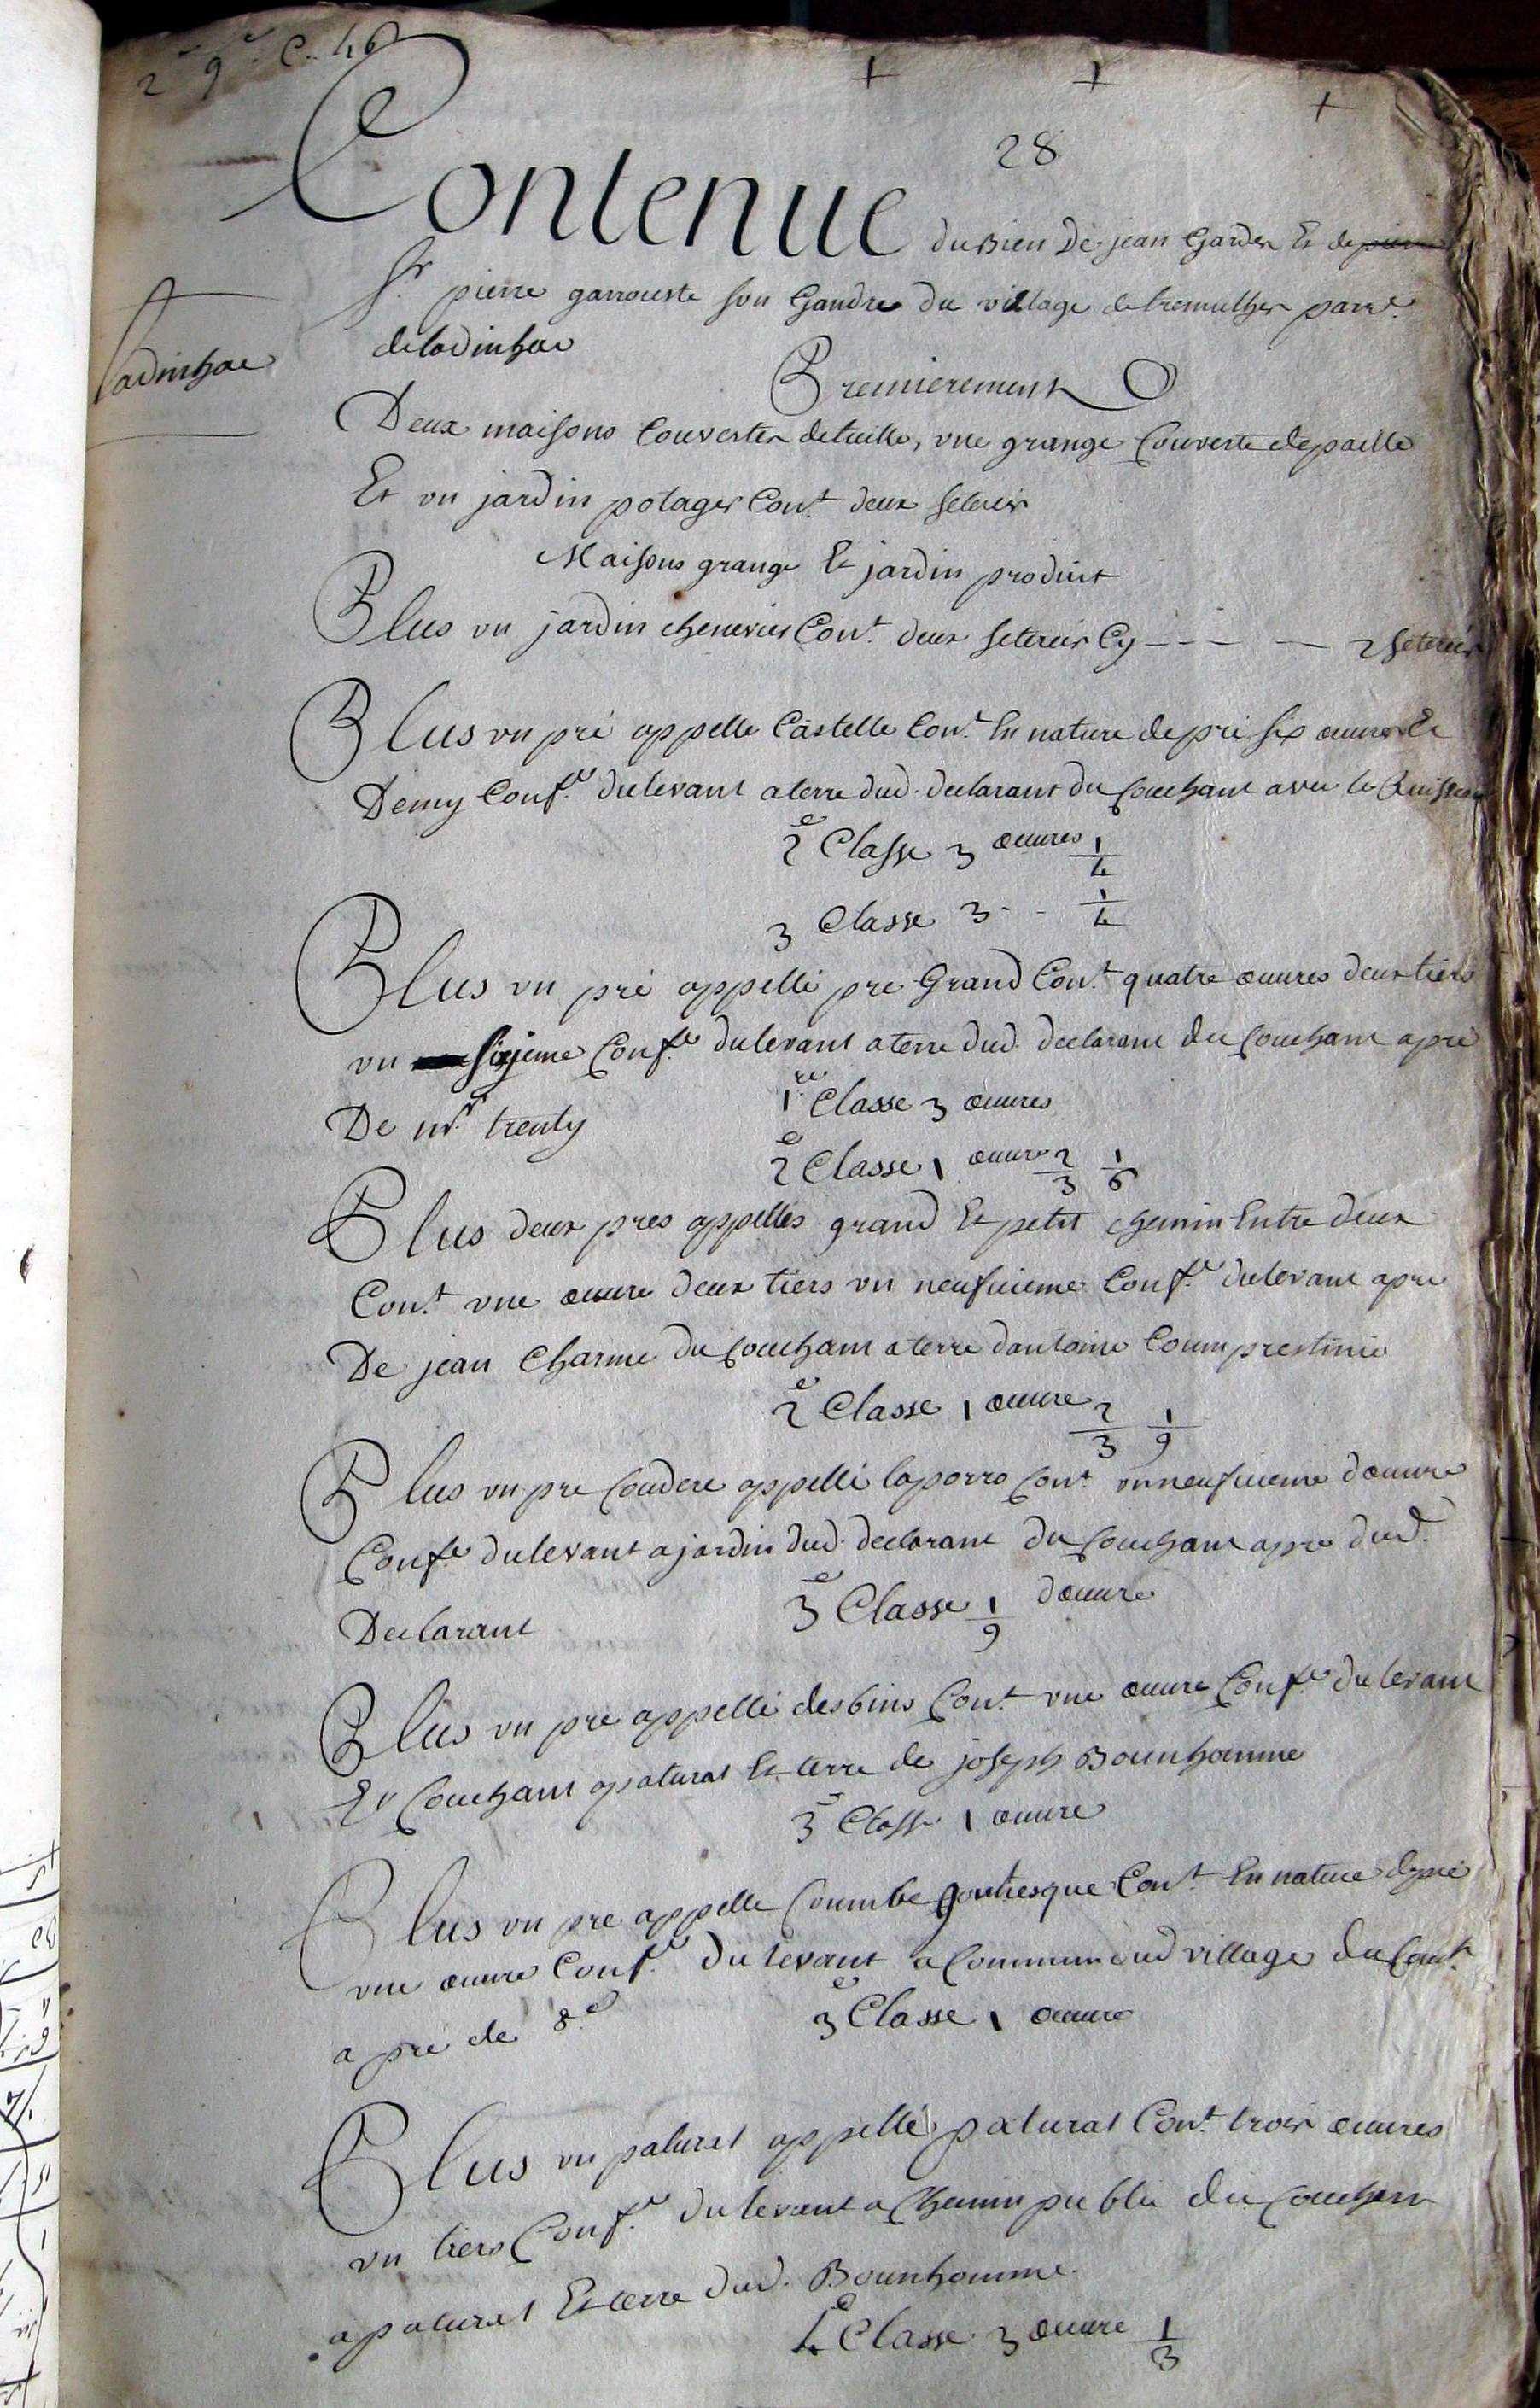 2e 9e C. 46
28
Contenue du Bien De jean Garder Et de pierre
Sr pierre garrouste son Gandre du village de tremulhes parre
de ladinhac
Ladinhac
Premierement
Deux maisons Couvertes de tuille, une grange Couverte de paille
Et un jardin potager Cont deux seterés
Maisons grange Et jardin produit
Plus un jardin chenevier Cont deux seterés Cy - - - - 2 seterés
Plus un pré appellé Castelle Cont En nature de pré six œuvres Et
Demy Confe du levant a terre dud. declarant du Couchant avec le Ruisseau
2e Classe 3 œuvres 1/4
3 Classe 3 - - 1/4
Plus un pré appellé pre Grand Cont quatre œuvres deux tiers
un sixjeme Confe du levant a terre dud. declarant du Couchant a pré
De mr. trenty
1re Classe 3 œuvres
2e Classe 1 œuvre 2/3 1/6
Plus deux pres appellés grand Et petit chemin Entre deux
Cont une œuvre deux tiers un neufuieme Confe du levant a pre
De jean Charme du Couchant a terre dantoine Coumprestinie
2e Classe 1 œuvre 2/3 1/9
Plus un pre Couderc appellé laporro Cont un neufuieme dœuvre
Confe du levant a jardin dud. declarant du Couchant a pre dud.
Declarant
3e Classe 1/9 dœuvre
Plus un pre appellé desbins Cont une œuvre Confe du levant
Et Couchant a patural Et terre de joseph Bounhomme
3e Classe 1 œuvre
Plus un pre appellé Coumbe goutiesque Cont En nature de pré
une œuvre Confe du levant a Commun dud village du Couht
a pré de 8e
3e Classe 1 œuvre
Plus un patural appellé patural Cont trois œuvres
un tiers Confe du levant a Chemin public du Couchant
a patural Et terre dud. Bounhomme
4e Classe 3 œuvre 1/3